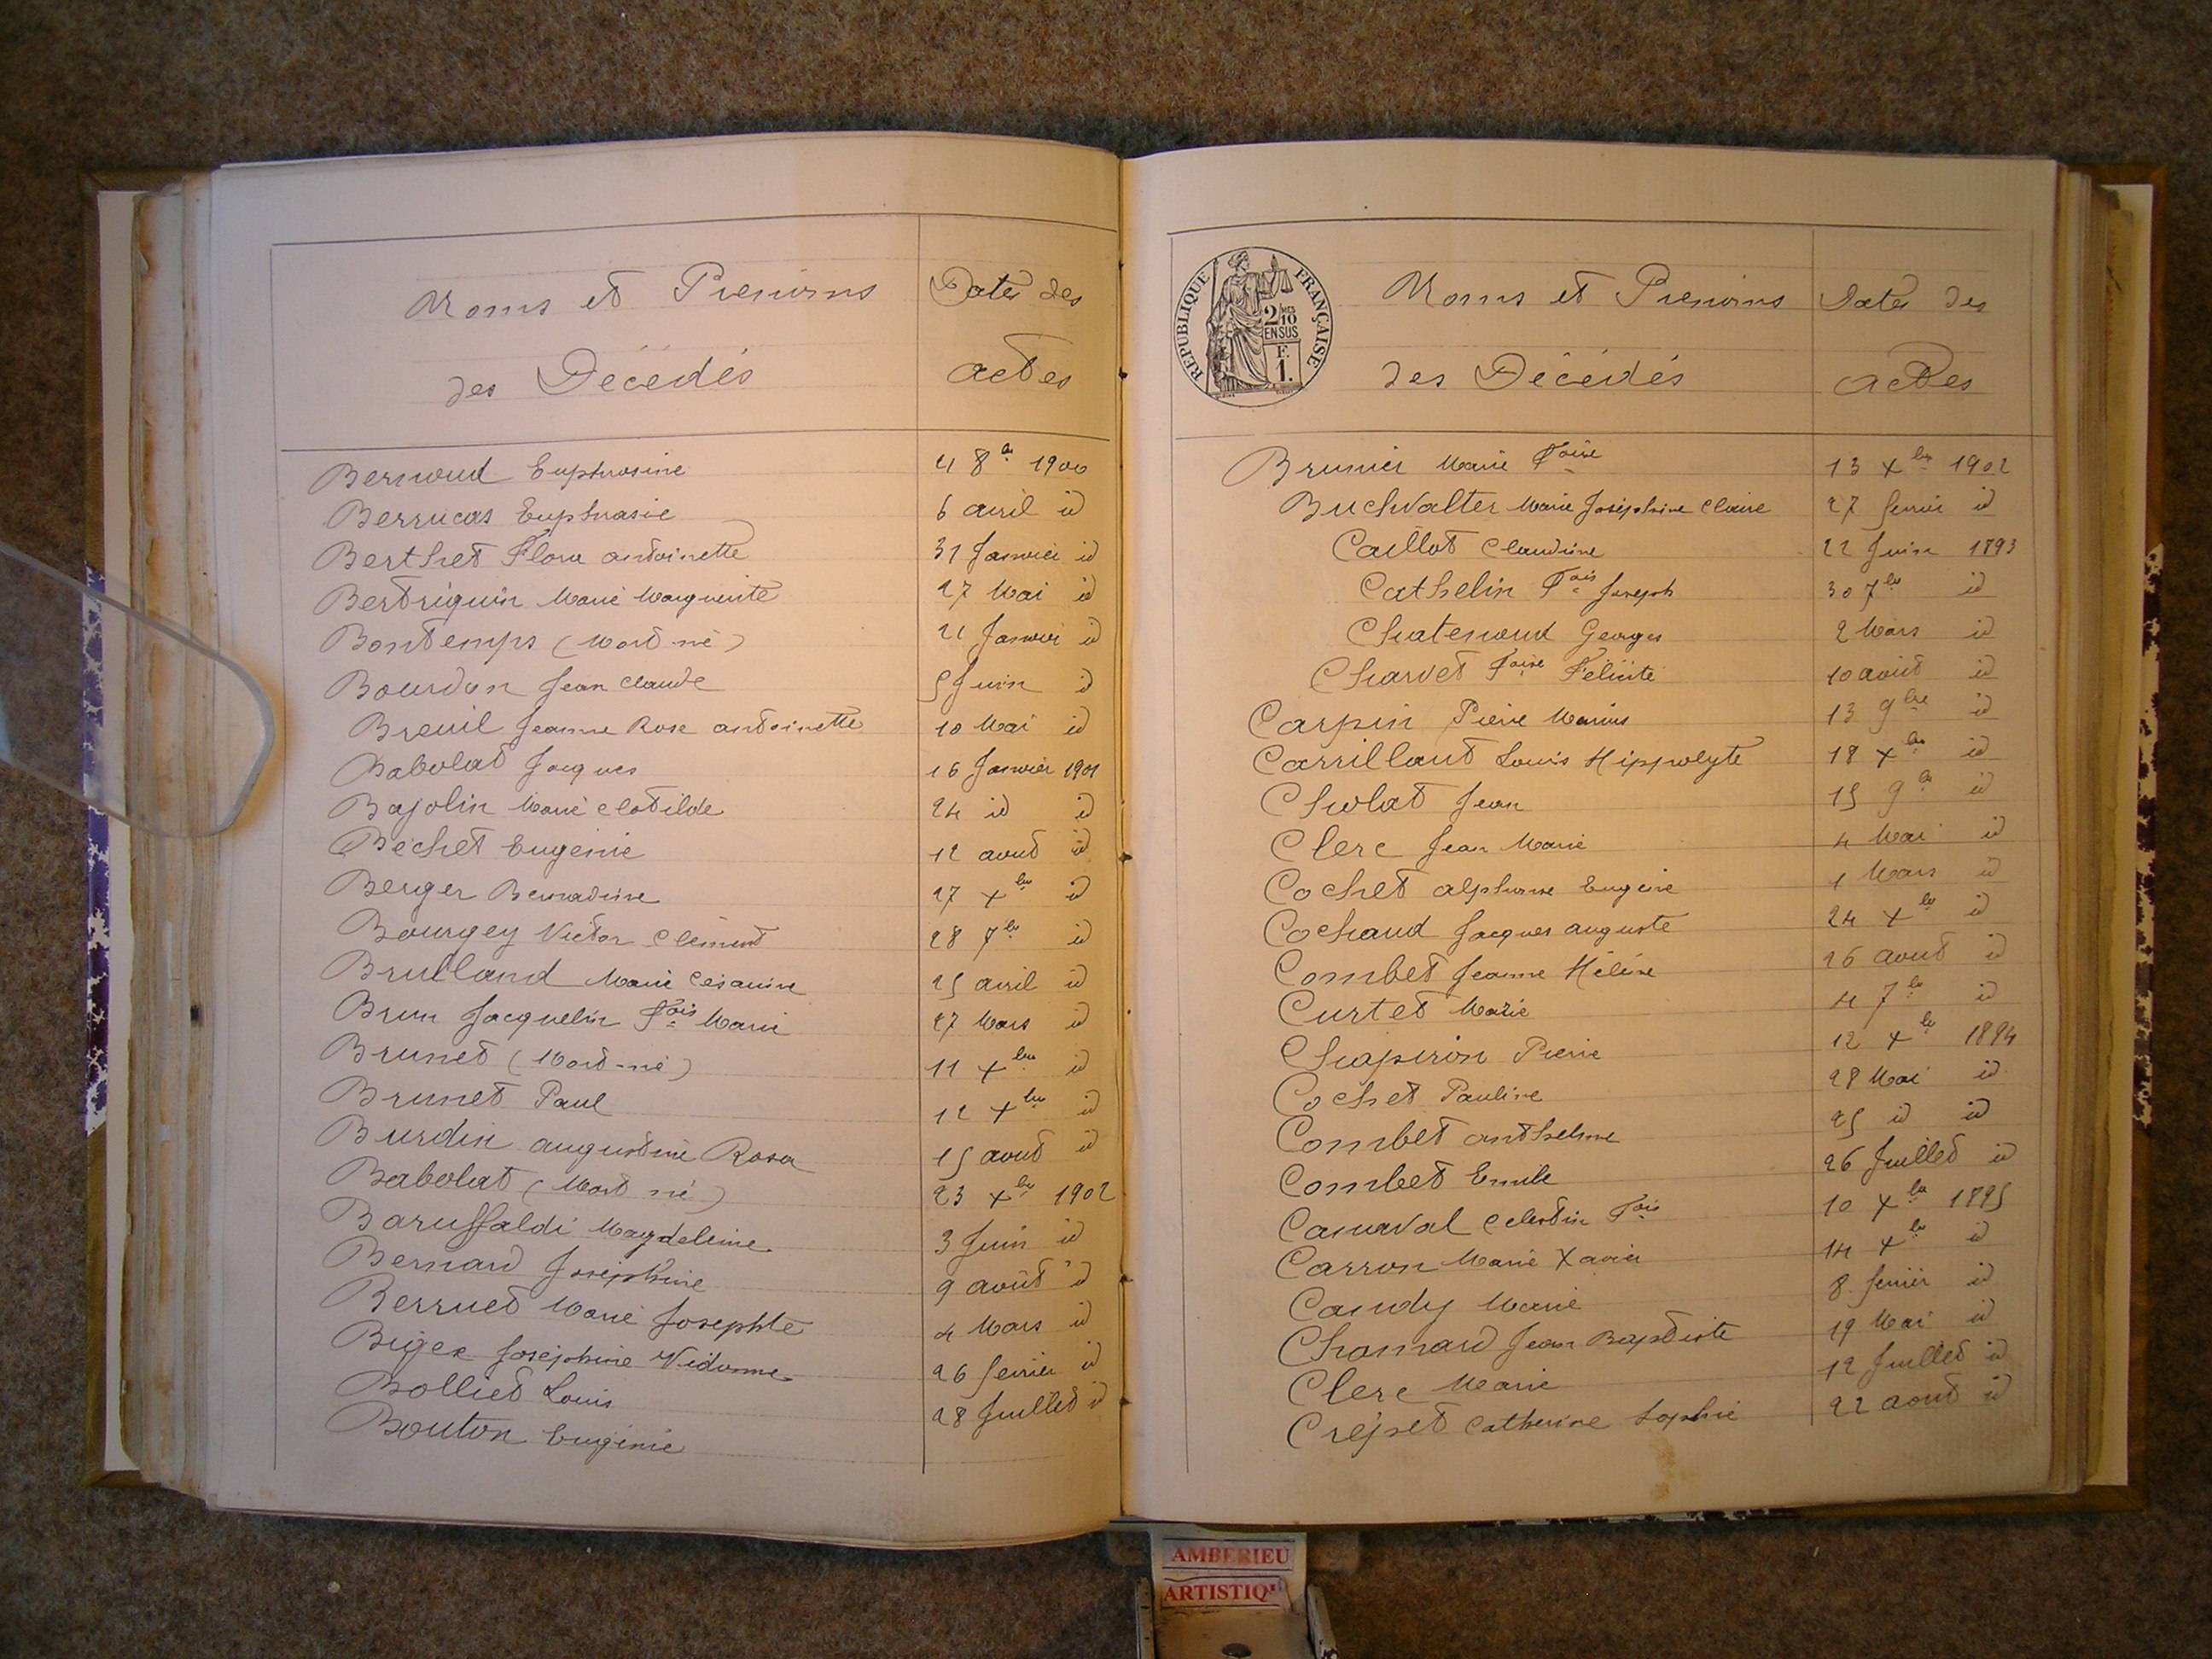 Noms et Prénoms
des Décédés
Dates des
actes
Bernoud Euphrosine 4 8bre 1900
Berrucas Euphrasie 6 avril id
Berthet Flora antoinette 31 Janvier id
Bertriguin Marie Marguerite 27 Mai id
Bontemps (Mort-né) 21 Janvier id
Bourdon Jean Claude 5 Juin id
Breuil Jeanne Rose antoinette 10 Mai id
Babolat Jacques 16 Janvier 1901
Bajolin Marie Clotilde 24 id id
Béchet Eugénie 12 aout id
Berger Bernadine 27 Xbre id
Bourgey Victor Clément 28 7bre id
Brulland Marie Césarine 25 avril id
Brun Jacquelin Fois Marie 27 Mars id
Brunet (Mort-né) 11 Xbre id
Brunet Paul 12 Xbre id
Burdin augustine Rosa 15 aout id
Babolat (Mort né) 23 Xbre 1902
Baruffaldi Magdeleine 3 Juin id
Bernard Joséphine 9 août id
Berruet Marie Josephte 4 Mars id
Biger Joséphine Vidonne 26 fevrier id
Bolliet Louis 28 Juillet id
Bouton Eugénie
REPUBLIQUE FRANÇAISE
2/10 MES
EN SUS
F.
1.
Noms et Prénoms
des Décédés
Dates des
actes
Brunier Marie Foise 13 Xbre 1902
Buchvalter Marie Joséphine Claire 27 fevrier id
Caillot Claudine 22 Juin 1893
Cathelin Fois Joseph 30 7bre id
Chatenoud Georges 2 Mars id
Charvet Foise Félicité 10 août id
Carpin Pierre Marius 13 9bre id
Carrillant Louis Hippolyte 18 Xbre id
Cholat Jean 15 9bre id
Clerc Jean Marie 4 Mai id
Cochet alphonse Eugène 1 Mars id
Cochaud Jacques auguste 24 Xbre id
Combet Jeanne Hélène 26 aout id
Curtet Marie 4 7bre id
Chapiron Pierre 12 Xbre 1894
Cochet Pauline 28 Mai id
Combet anthelme 25 id id
Combet Emile 26 Juillet id
Canaval Celestin Fois 10 Xbre 1895
Carron Marie Xavier 14 Xbre id
Candy Marie 8 fevrier id
Chomard Jean Baptiste 19 Mai id
Clerc Marie 12 Juillet id
Crépet Catherine Sophie 22 aout id
AMBERIEU
ARTISTIQ